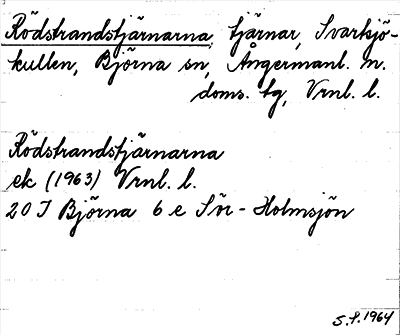 Rödstrandstjärnarna, tjärnar, Svartsjö-
kullen, Björna sn, Ångermanl. m.
doms. lg, Vrnl. l.
Rödstrandstjärnarna
ek (1963) Vrnl. l.
20 I Björna 6 e Sör-Holmsjön
S.S. 1964